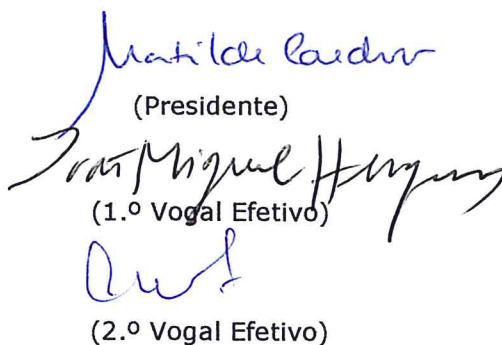 Matilde Cardoso
(Presidente)
João Miguel
(1.º Vogal Efetivo)
(2.º Vogal Efetivo)